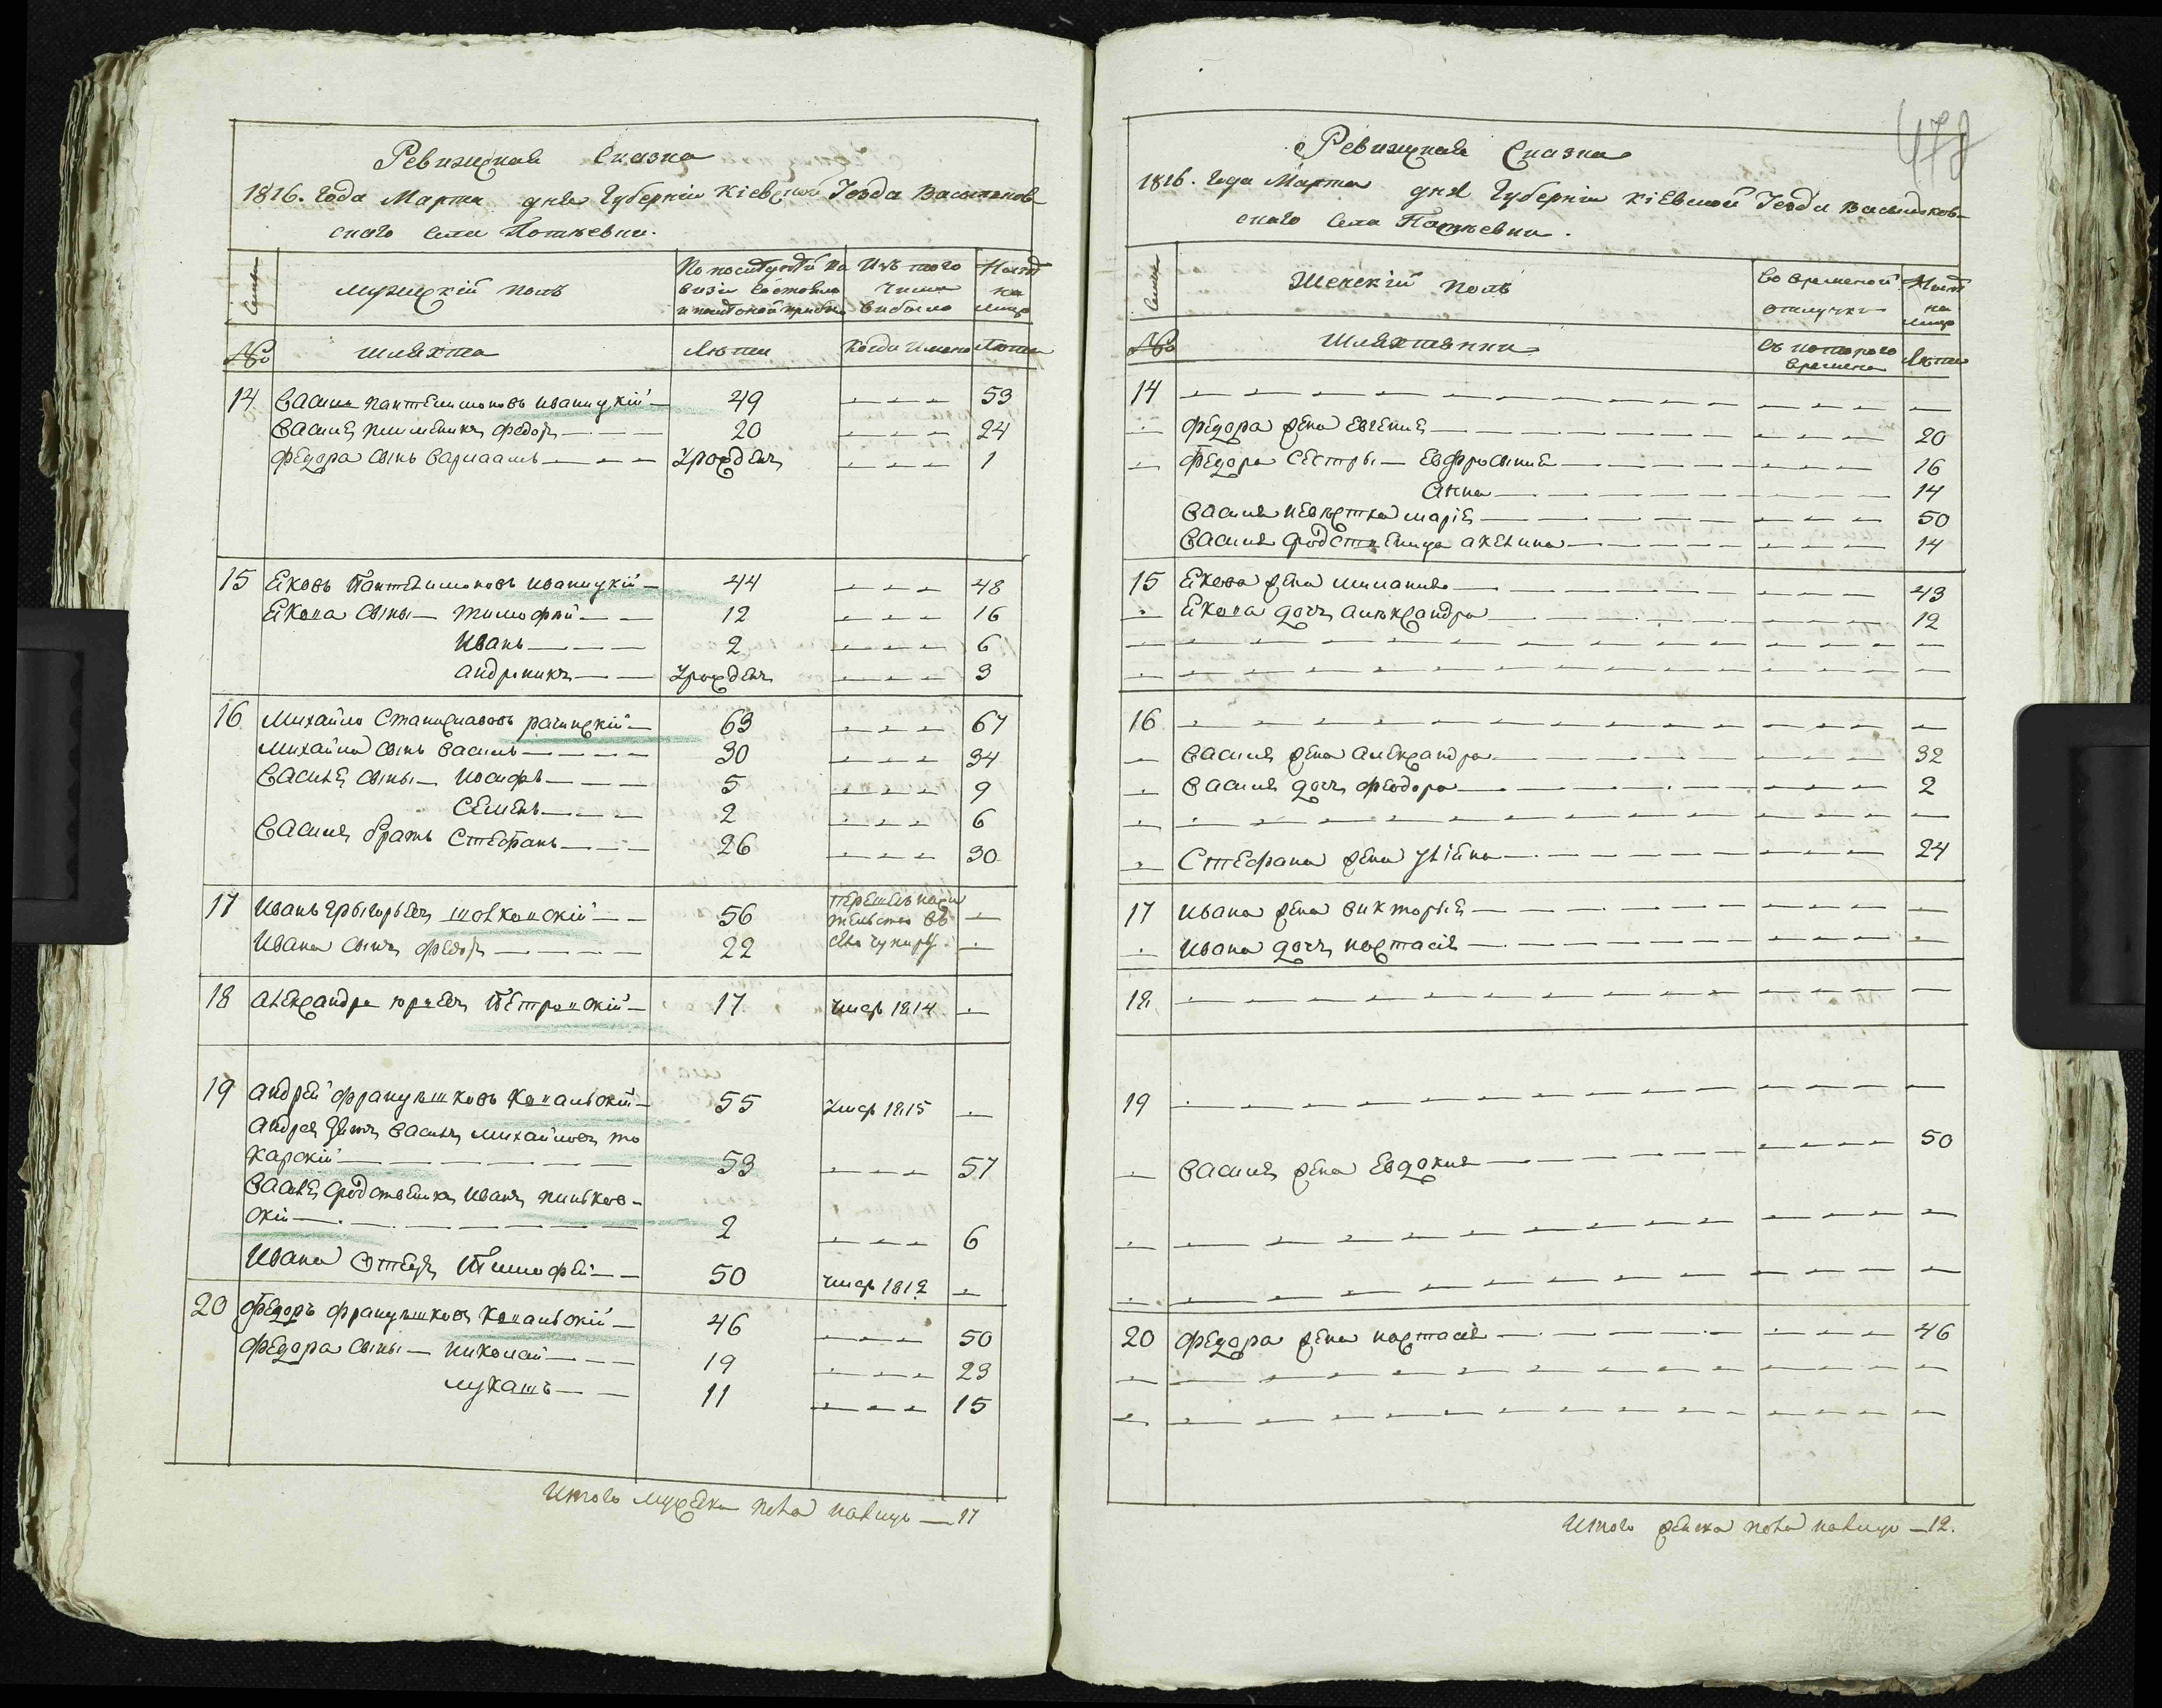 Ревижская Сказка
1816. Года Марта дня Губерніи Кіевской Уезда Васильков-
ского Села Потіевки.
Мужескій полъ
По последней ре Изъ того Ныне
визіи состояло числа на
и после оной прибыло выбыло лицо
№ шляхта Лета Когда имено Лета
14 Василь пантелимоновъ иваницкій 49 53
Василя племеникъ федоръ 20 24
федора сынъ варлаамъ урожденъ 1
15 Яковъ Пантелимоновъ иваницкій 44 48
Якова сыны тимофей 12 16
Иванъ 2 6
андроникъ урожденъ 3
16 Михайло Станиславовъ рачинскій 63 67
Михайла сынъ василь 30 34
василя сыны иосифъ 5 9
семенъ 2 6
василя братъ Стефанъ 26 30
17 Иванъ Грыгорьевъ шовконскій 56 перешелъ на жи
тельство въ
Ивана сынъ федоръ 22
18 александра юрьевъ Петровскій 17 умеръ 1814
19 андрей францышковъ Копанскій 55 умеръ 1815
андрея зять василь михайловъ то
карскій 53 57
василя родственикъ иванъ пильков-
скій 2 6
Ивана отецъ Тимофей 50 умеръ 1812
20 федоръ францышковъ Копанскій 46 50
федора сыны николай 19 23
лукашъ 11 15
Итого мужеска пола налицо 17
478
Ревижская Сказка
1816. Года Марта дня Губерніи Кіевской Уезда Васильков-
ского Села Потіевки.
Женскій полъ
Во временной Ныне
отлучке на
лицо
№ Шляхтянки съ которого Лета
времени
14
федора жена евгения 20
федора сестры Евфросиния 16
Анна 14
василя невестка марія 50
василя родственица аксенина 14
15 Якова жена меланія 43
Якова дочь александра 12
16
василя жена александра 32
василя дочь феодора 2
Стефана жена уліяна 24
17 ивана жена викторыя
ивана дочь настасія
18
19
василя жена Евдокия 50
20 федора жена настасія 46
Итого женска пола налицо 12.